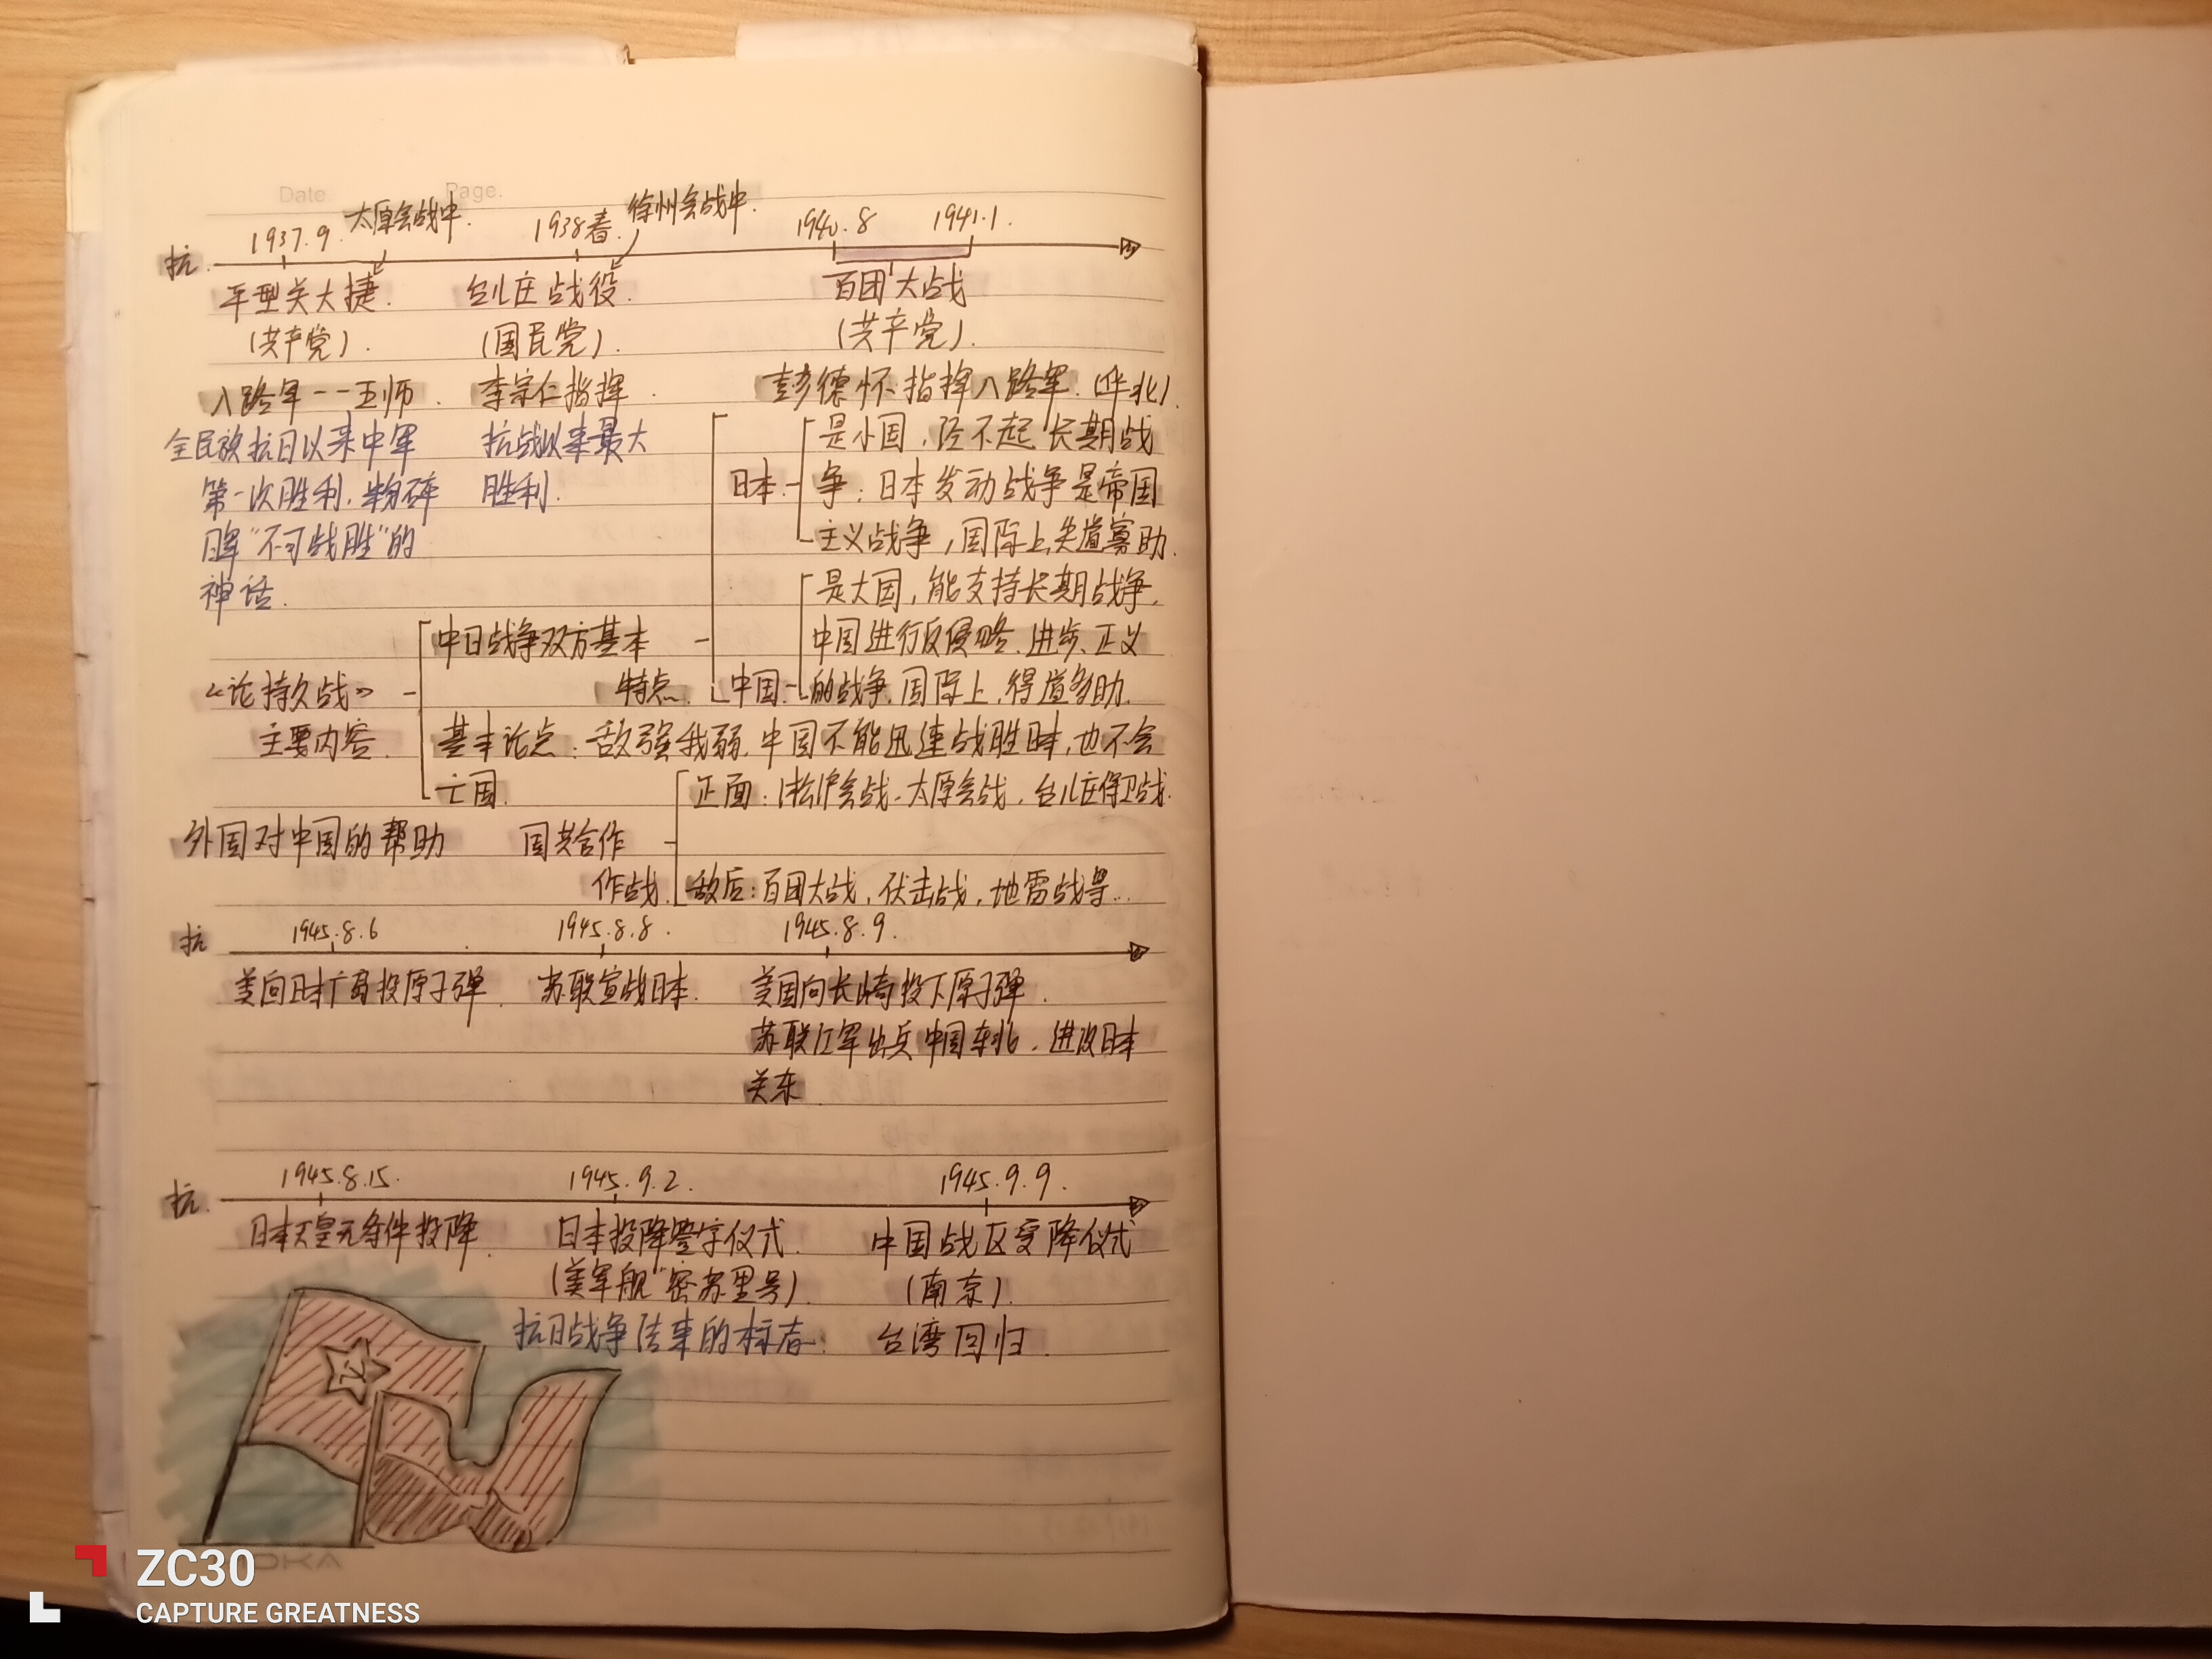 Date. Page.
太原会战中.
徐州会战中.
1937.9. 1938春. 1940.8 1941.1.
抗.
平型关大捷. 台儿庄战役. 百团大战
(共产党). (国民党). (共产党).
八路军一一五师. 李宗仁指挥. 彭德怀指挥八路军.(华北).
全民族抗日以来中军 抗战以来最大
第一次胜利,粉碎 胜利.
日军"不可战胜"的
神话.
日本- 是小国,经不起长期战
争;日本发动战争是帝国
主义战争,国际上失道寡助.
是大国,能支持长期战争,
中日战争双方基本 中国进行反侵略、进步、正义
特点. 中国- 的战争,国际上,得道多助.
《论持久战》
主要内容.
基本论点:敌强我弱,中国不能迅速战胜日本,也不会
亡国.
正面:淞沪会战、太原会战,台儿庄保卫战.
外国对中国的帮助 国共合作
作战. 敌后:百团大战,伏击战,地雷战等...
抗 1945.8.6 1945.8.8. 1945.8.9.
美向日本广岛投原子弹. 苏联宣战日本. 美国向长崎投下原子弹.
苏联红军出兵中国东北,进攻日本
关东
抗. 1945.8.15. 1945.9.2. 1945.9.9.
日本天皇无条件投降. 日本投降签字仪式. 中国战区受降仪式
(美军舰"密苏里号). (南京).
抗日战争结束的标志: 台湾回归.
ZC30
CAPTURE GREATNESS